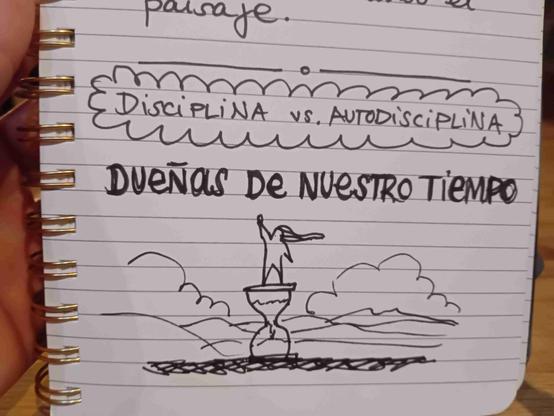 paisaje.
DisciPLiNA vs. AUTODisciPLiNA
DUEÑas De NUESTRO TieMPO